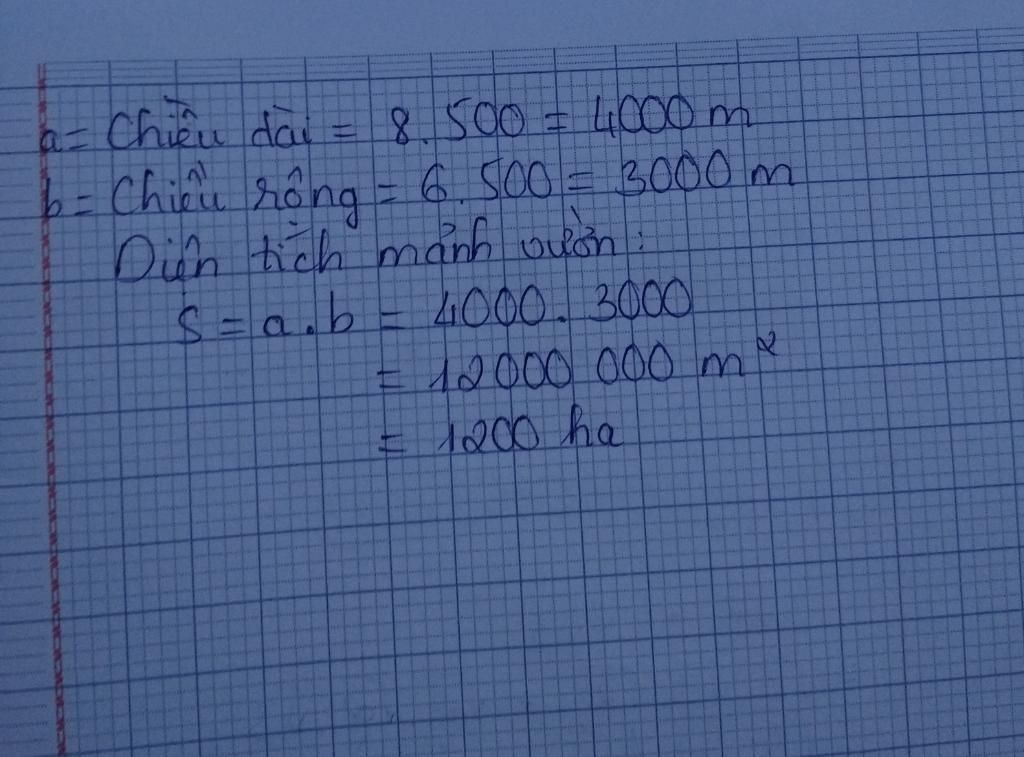 a = Chiều dài = 8.500 = 4000 m
b = Chiều rộng = 6.500 = 3000 m
Diện tích mảnh vườn :
S = a.b = 4000. 3000
= 12000 000 m²
= 1200 ha